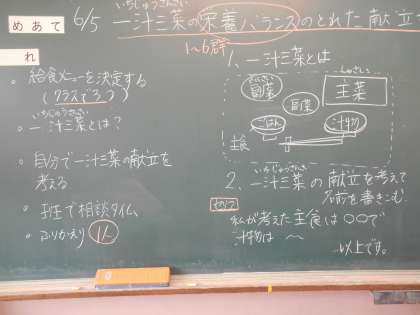 めあて 6/5 いちじゅうさんさい
一汁三菜の栄養バランスのとれた献立
1~6群
れ
・給食メニューを決定する
(クラスで3つ)
いちじゅうさんさい
・一汁三菜とは?
・自分で一汁三菜の献立を
考える
・班で相談タイム
・ふりかえり 1人
1、一汁三菜とは
副菜
しゅさい
主菜
副菜
ごはん
汁物
主食
いちじゅうさんさい
2、一汁三菜の献立を考えて
名前を書きこむ。
私が考えた主食は〇〇で
汁物は 〜
以上です。